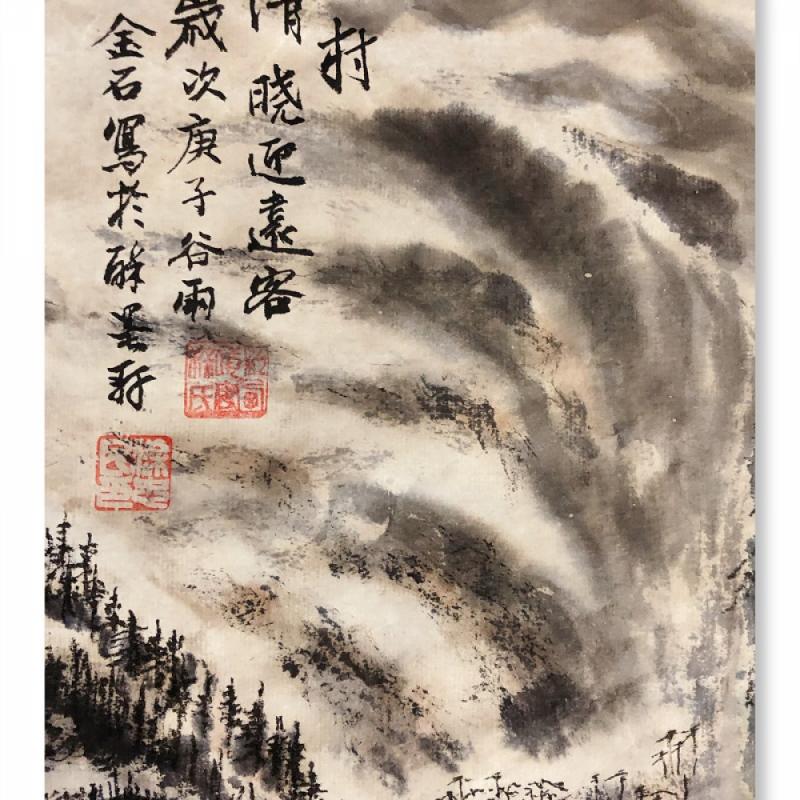 村
清晓迎遠客
歲次庚子谷雨
金石寫於醉墨軒